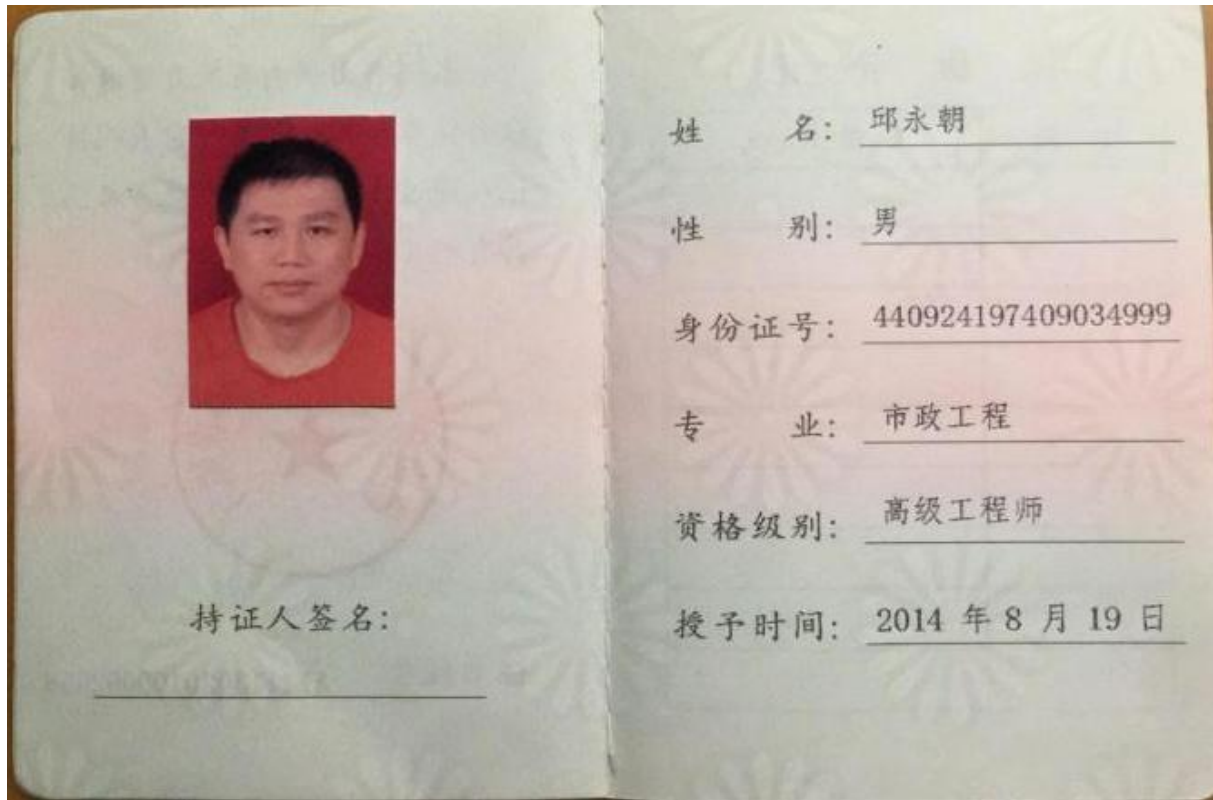 持证人签名：
姓 名： 邱永朝
性 别： 男
身份证号： 440924197409034999
专 业： 市政工程
资格级别： 高级工程师
授予时间： 2014 年 8 月 19 日